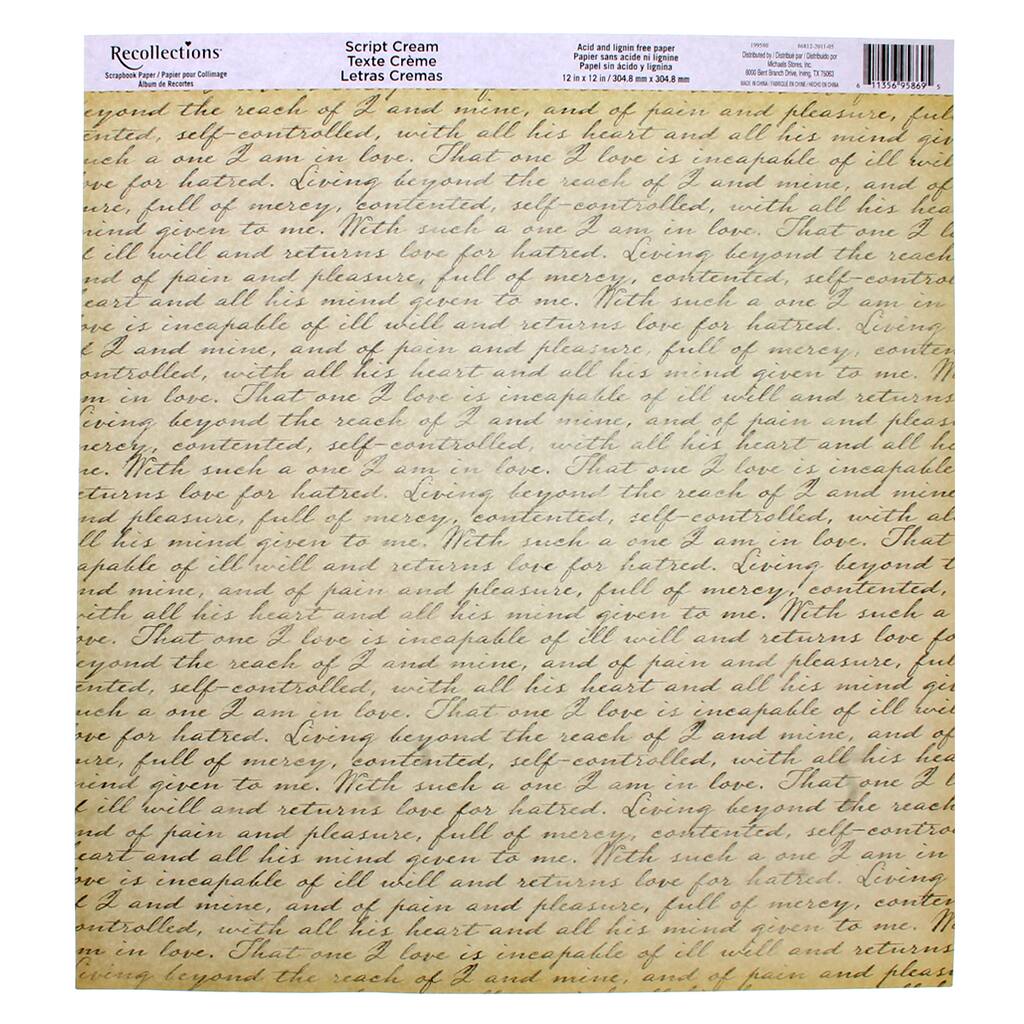 Recollections
Scrapbook Paper / Papier pour Collimage
Álbum de Recortes
Script Cream
Texte Crème
Letras Cremas
Acid and lignin free paper
Papier sans acide ni lignine
Papel sin ácido y lignina
12 in x 12 in / 304.8 mm x 304.8 mm
199580 66812-2011-05
Distributed by / Distribué par / Distribuido por
Michaels Stores, Inc.
8000 Bent Branch Drive, Irving, TX 75063
MADE IN CHINA / FABRIQUÉ EN CHINE / HECHO EN CHINA
6 11356 95869 5
eyond the reach of I and mine, and of pain and pleasure, ful
ented, self-controlled, with all his heart and all his mind giv
uch a one I am in love. That one I love is incapable of ill wil
ove for hatred. Living beyond the reach of I and mine, and of
ure, full of mercy, contented, self-controlled, with all his hea
mind given to me. With such a one I am in love. That one I l
f ill will and returns love for hatred. Living beyond the reach
nd of pain and pleasure, full of mercy, contented, self-control
eart and all his mind given to me. With such a one I am in
ove is incapable of ill will and returns love for hatred. Living
f I and mine, and of pain and pleasure, full of mercy, conten
ontrolled, with all his heart and all his mind given to me. W
m in love. That one I love is incapable of ill will and returns
iving beyond the reach of I and mine, and of pain and pleas
mercy, contented, self-controlled, with all his heart and all hi
me. With such a one I am in love. That one I love is incapable
eturns love for hatred. Living beyond the reach of I and mine
nd pleasure, full of mercy, contented, self-controlled, with al
ll his mind given to me. With such a one I am in love. That
apable of ill will and returns love for hatred. Living beyond t
nd mine, and of pain and pleasure, full of mercy, contented,
with all his heart and all his mind given to me. With such a
ove. That one I love is incapable of ill will and returns love fo
eyond the reach of I and mine, and of pain and pleasure, ful
ented, self-controlled, with all his heart and all his mind giv
uch a one I am in love. That one I love is incapable of ill wil
ove for hatred. Living beyond the reach of I and mine, and of
ure, full of mercy, contented, self-controlled, with all his hea
mind given to me. With such a one I am in love. That one I l
f ill will and returns love for hatred. Living beyond the reach
nd of pain and pleasure, full of mercy, contented, self-contro
eart and all his mind given to me. With such a one I am in
ove is incapable of ill will and returns love for hatred. Living
f I and mine, and of pain and pleasure, full of mercy, conten
ontrolled, with all his heart and all his mind given to me. W
m in love. That one I love is incapable of ill will and returns
iving beyond the reach of I and mine, and of pain and pleas